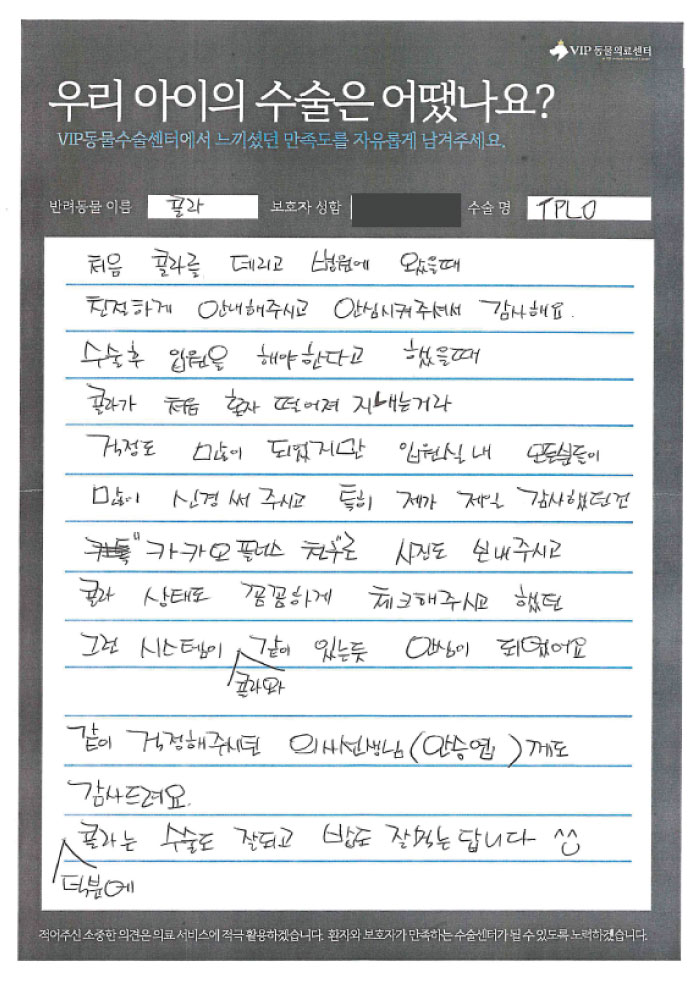 VIP 동물의료센터
우리 아이의 수술은 어땠나요?
VIP동물수술센터에서 느끼셨던 만족도를 자유롭게 남겨주세요.
반려동물 이름 콜라 보호자 성함 수술 명 TPLO
처음 콜라를 데리고 병원에 왔을때
친절하게 안내해주시고 안심시켜주셔서 감사해요.
수술후 입원을 해야한다고 했을때
콜라가 처음 혼자 떨어져 지내는거라
걱정도 많이 되었지만 입원실 내 모든분들이
많이 신경써 주시고 특히 제가 제일 감사했던건
"카카오 플러스 친구"로 사진도 보내주시고
콜라 상태도 꼼꼼하게 체크해주시고 했던
그런 시스템이 콜라와 같이 있는듯 안심이 되었어요
같이 걱정해주시던 의사선생님(안승엽)께도
감사드려요.
덕분에 콜라는 수술도 잘되고 밥도 잘먹는답니다 ^^
적어주신 소중한 의견은 의료 서비스에 적극 활용하겠습니다. 환자와 보호자가 만족하는 수술센터가 될 수 있도록 노력하겠습니다.